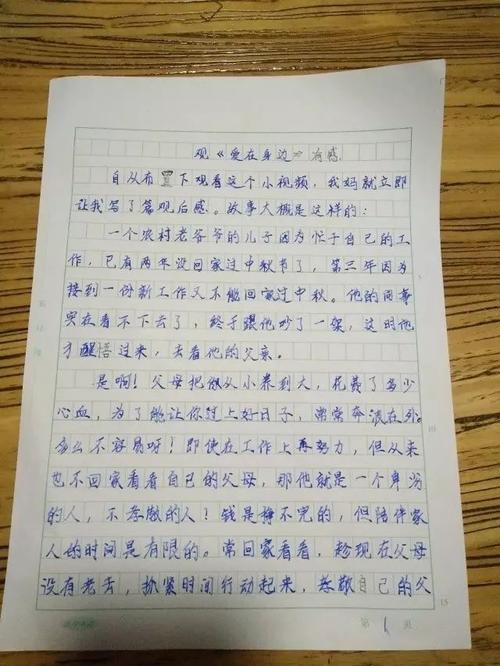 观《爱在身边》有感
自从布置下观看这个小视频，我妈就立即
让我写了篇观后感。故事大概是这样的：
一个农村老爷爷的儿子因为忙于自己的工
作，已有两年没回家过中秋节了，第三年因为
接到一份新工作又不能回家过中秋。他的同事
实在看不下去了，终于跟他吵了一架，这时他
才醒悟过来，去看他的父亲。
是啊！父母把你从小养到大，花费了多少
心血，为了能让你过上好日子，常常奔波在外。
多么不容易呀！即使在工作上再努力，但从来
也不回家看看自己的父母，那他就是一个卑劣
的人，不孝敬的人！钱是挣不完的，但陪伴家
人的时间是有限的。常回家看看，趁现在父母
没有老去，抓紧时间行动起来，孝敬自己的父
15
第 1 页